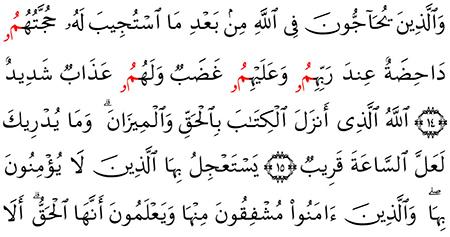 وَٱلَّذِينَ يُحَآجُّونَ فِى ٱللَّهِ مِنۢ بَعْدِ مَا ٱسْتُجِيبَ لَهُۥ حُجَّتُهُمُۥ
دَاحِضَةٌ عِندَ رَبِّهِمُۥ وَعَلَيْهِمُۥ غَضَبٌ وَلَهُمُۥ عَذَابٌ شَدِيدٌ
١٤ ٱللَّهُ ٱلَّذِى أَنزَلَ ٱلْكِتَـٰبَ بِٱلْحَقِّ وَٱلْمِيزَانَ ۗ وَمَا يُدْرِيكَ
لَعَلَّ ٱلسَّاعَةَ قَرِيبٌ ١٥ يَسْتَعْجِلُ بِهَا ٱلَّذِينَ لَا يُؤْمِنُونَ
بِهَا ۖ وَٱلَّذِينَ ءَامَنُوا۟ مُشْفِقُونَ مِنْهَا وَيَعْلَمُونَ أَنَّهَا ٱلْحَقُّ ۗ أَلَا